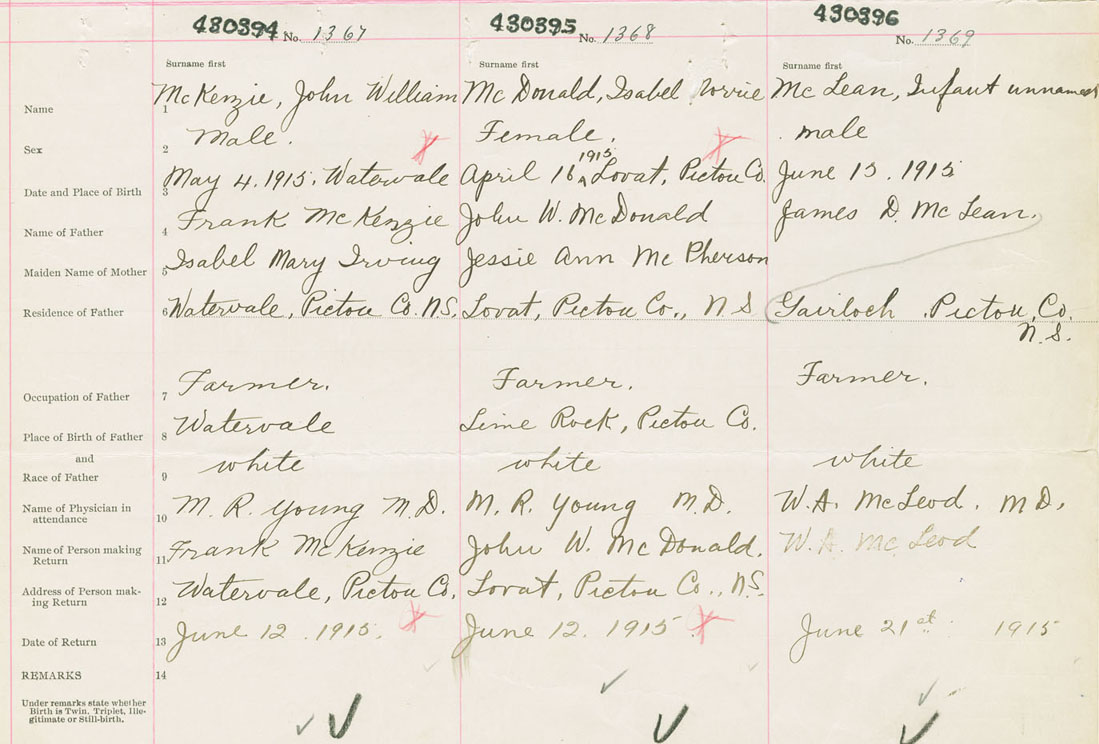 430394 No. 1367 430395 No. 1368 430396 No. 1369
Surname first Surname first Surname first
Name 1 McKenzie, John William McDonald, Isabel McLean, Infant unnamed
Sex 2 Male. Female. male
Date and Place of Birth 3 May 4. 1915. Watervale April 16 1915 Lovat, Pictou Co. June 15. 1915
Name of Father 4 Frank McKenzie John W. McDonald James D. McLean.
Maiden Name of Mother 5 Isabel Mary Irving Jessie Ann McPherson
Residence of Father 6 Watervale, Pictou Co. N.S. Lovat, Pictou Co., N S Gairloch Pictou, Co.
N.S.
Occupation of Father 7 Farmer. Farmer. Farmer.
Place of Birth of Father 8 Watervale Lime Rock, Pictou Co.
and
Race of Father 9 white white white
Name of Physician in
attendance 10 M. R. Young M.D. M. R. Young M.D. W.A. McLeod. M.D.
Name of Person making
Return 11 Frank McKenzie John W. McDonald. W. A. McLeod
Address of Person mak-
ing Return 12 Watervale, Pictou Co. Lovat, Pictou Co., N.S.
Date of Return 13 June 12. 1915. June 12. 1915 June 21st 1915
REMARKS 14
Under remarks state whether
Birth is Twin, Triplet, Ille-
gitimate or Still-birth.